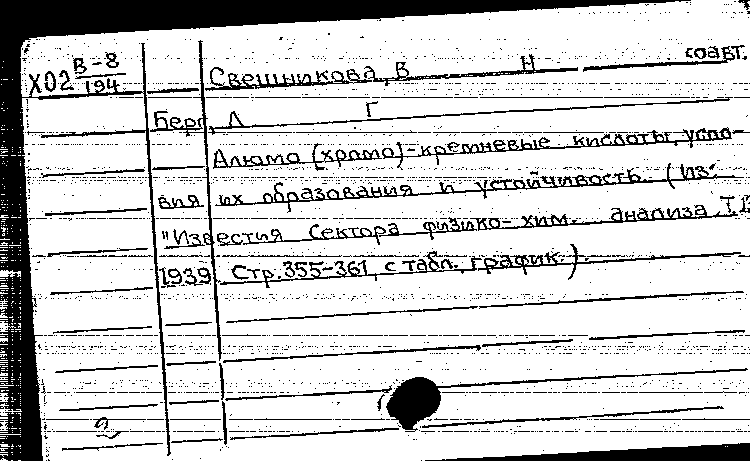 Х02 В-8/194 Свешникова, В Н соавт.
Берг, Л Г
Алюмо (хромо)-кремневые кислоты, усло-
вия их образования и устойчивость. (Из:
"Известия Сектора физико-хим. анализа.
1939 Стр. 355-361, с табл., график.)